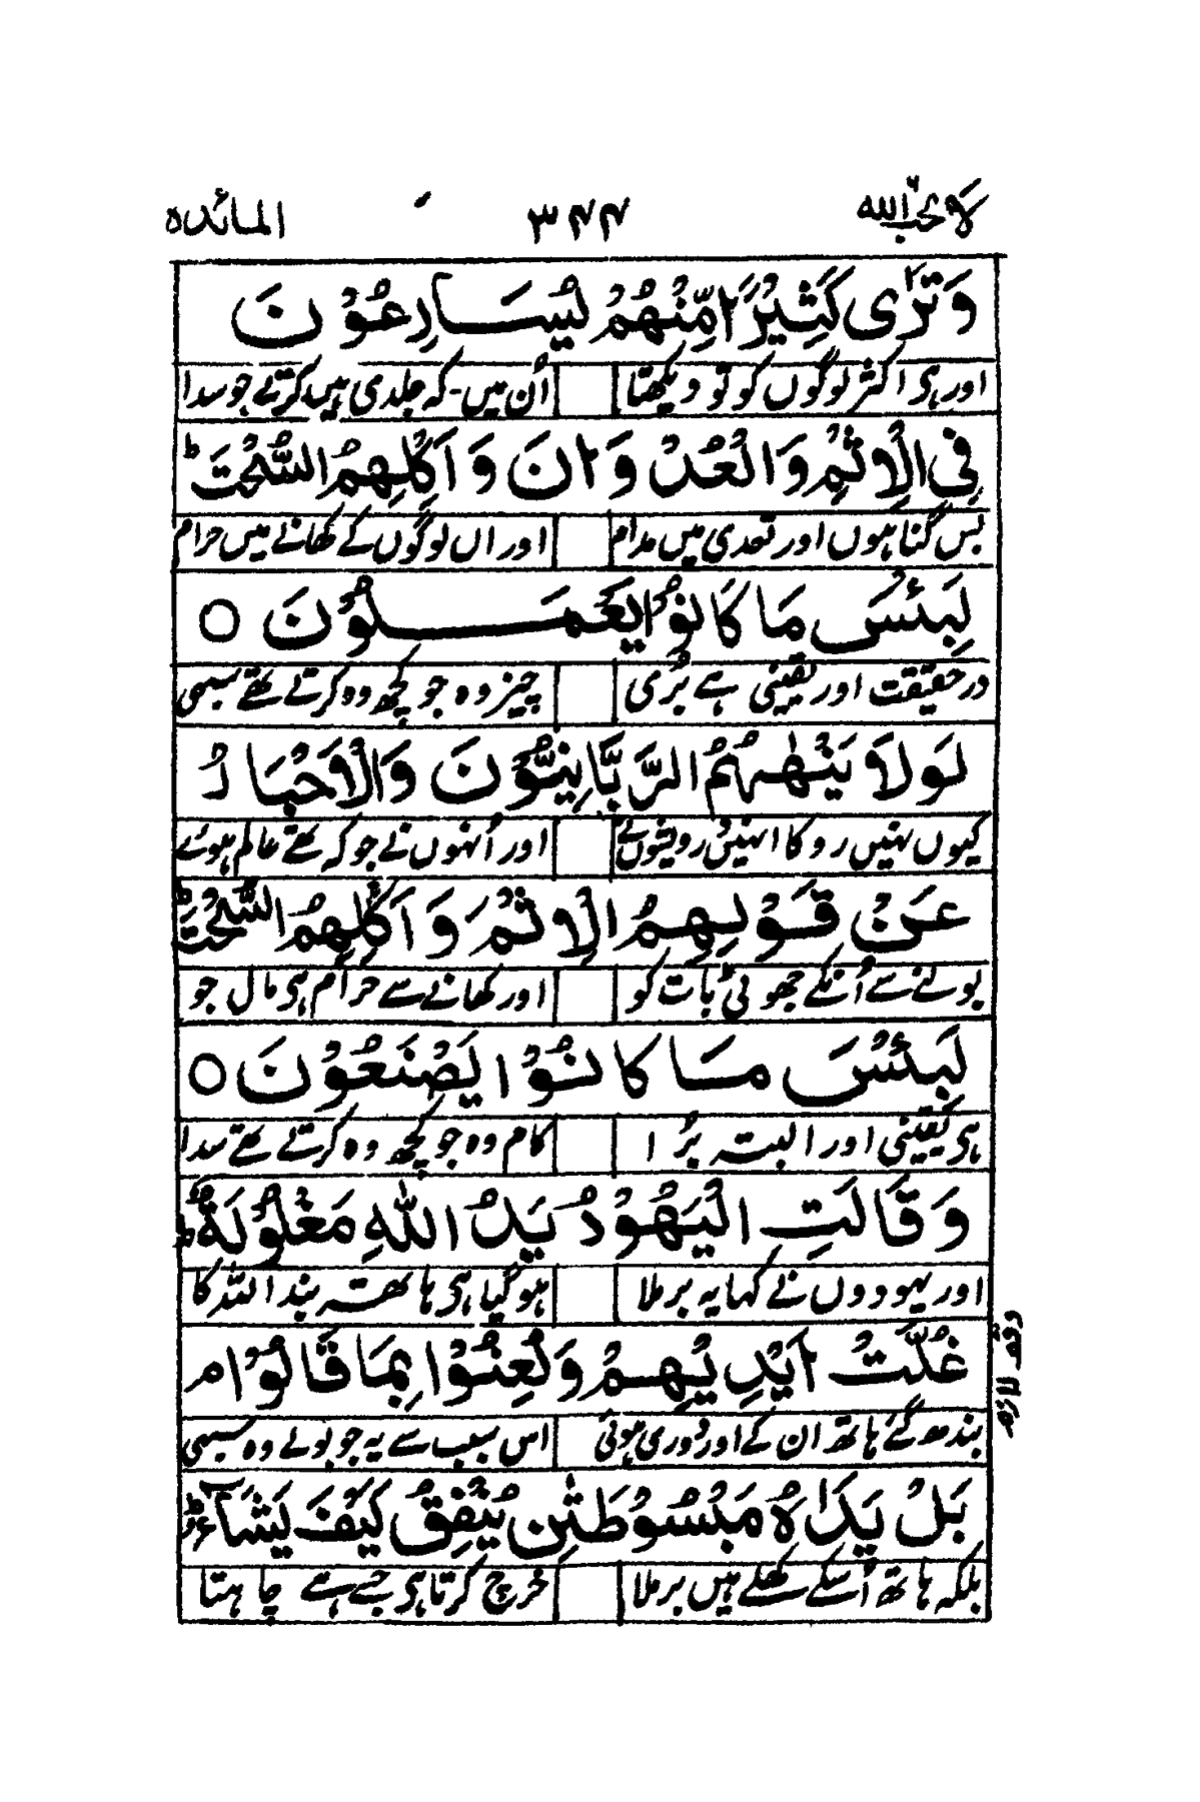 لا یحب اللہ ۳۴۴ المائدہ
وَتَرٰى كَثِيْرًا مِّنْهُمْ يُسَارِعُوْنَ
اور ہی اکثر لوگوں کو تو دیکھتا اُن میں-کہ جلدی ہیں کرتے جو سدا
فِى الْاِثْمِ وَالْعُدْوَانِ وَاَكْلِهِمُ السُّحْتَ ط
بس گناہوں اور تعدی میں مدام اور اں لوگوں کے کھانے میں حرام
لَبِئْسَ مَا كَانُوْا يَعْمَلُوْنَ ○
در حقیقت اور یقینی ہے بُری چیز وہ جو کچھ وہ کرتے تھے سبھی
لَوْلَا يَنْهٰىهُمُ الرَّبَّانِيُّوْنَ وَالْاَحْبَارُ
کیوں نہیں روکا انہیں درویشوں نے اور اُنہوں نے جو کہ تھے عالم ہوئے
عَنْ قَوْلِهِمُ الْاِثْمَ وَاَكْلِهِمُ السُّحْتَ ط
بولنے سے اُنکے جھوٹی بات کو اور کھانے سے حرام ہی مال جو
لَبِئْسَ مَا كَانُوْا يَصْنَعُوْنَ ○
ہی یقینی اور البتہ بُرا کام وہ جو کچھ وہ کرتے تھے سدا
وَقَالَتِ الْيَهُوْدُ يَدُ اللّٰهِ مَغْلُوْلَةٌ ط
اور یہودوں نے کہا یہ برملا ہو گیا ہی ہاتھ بند اللہ کا
غُلَّتْ اَيْدِيْهِمْ وَلُعِنُوْا بِمَا قَالُوْا م
وقف لازم
بندھ گئے ہاتھ ان کے اور دوری ہوئی اس سبب سے یہ جو بولے وہ سبھی
بَلْ يَدٰاهُ مَبْسُوْطَتٰنِ يُنْفِقُ كَيْفَ يَشَآءُ ط
بلکہ ہاتھ اُسکے کھلے ہیں برملا خرچ کرتا ہی جسے ہے چاہتا